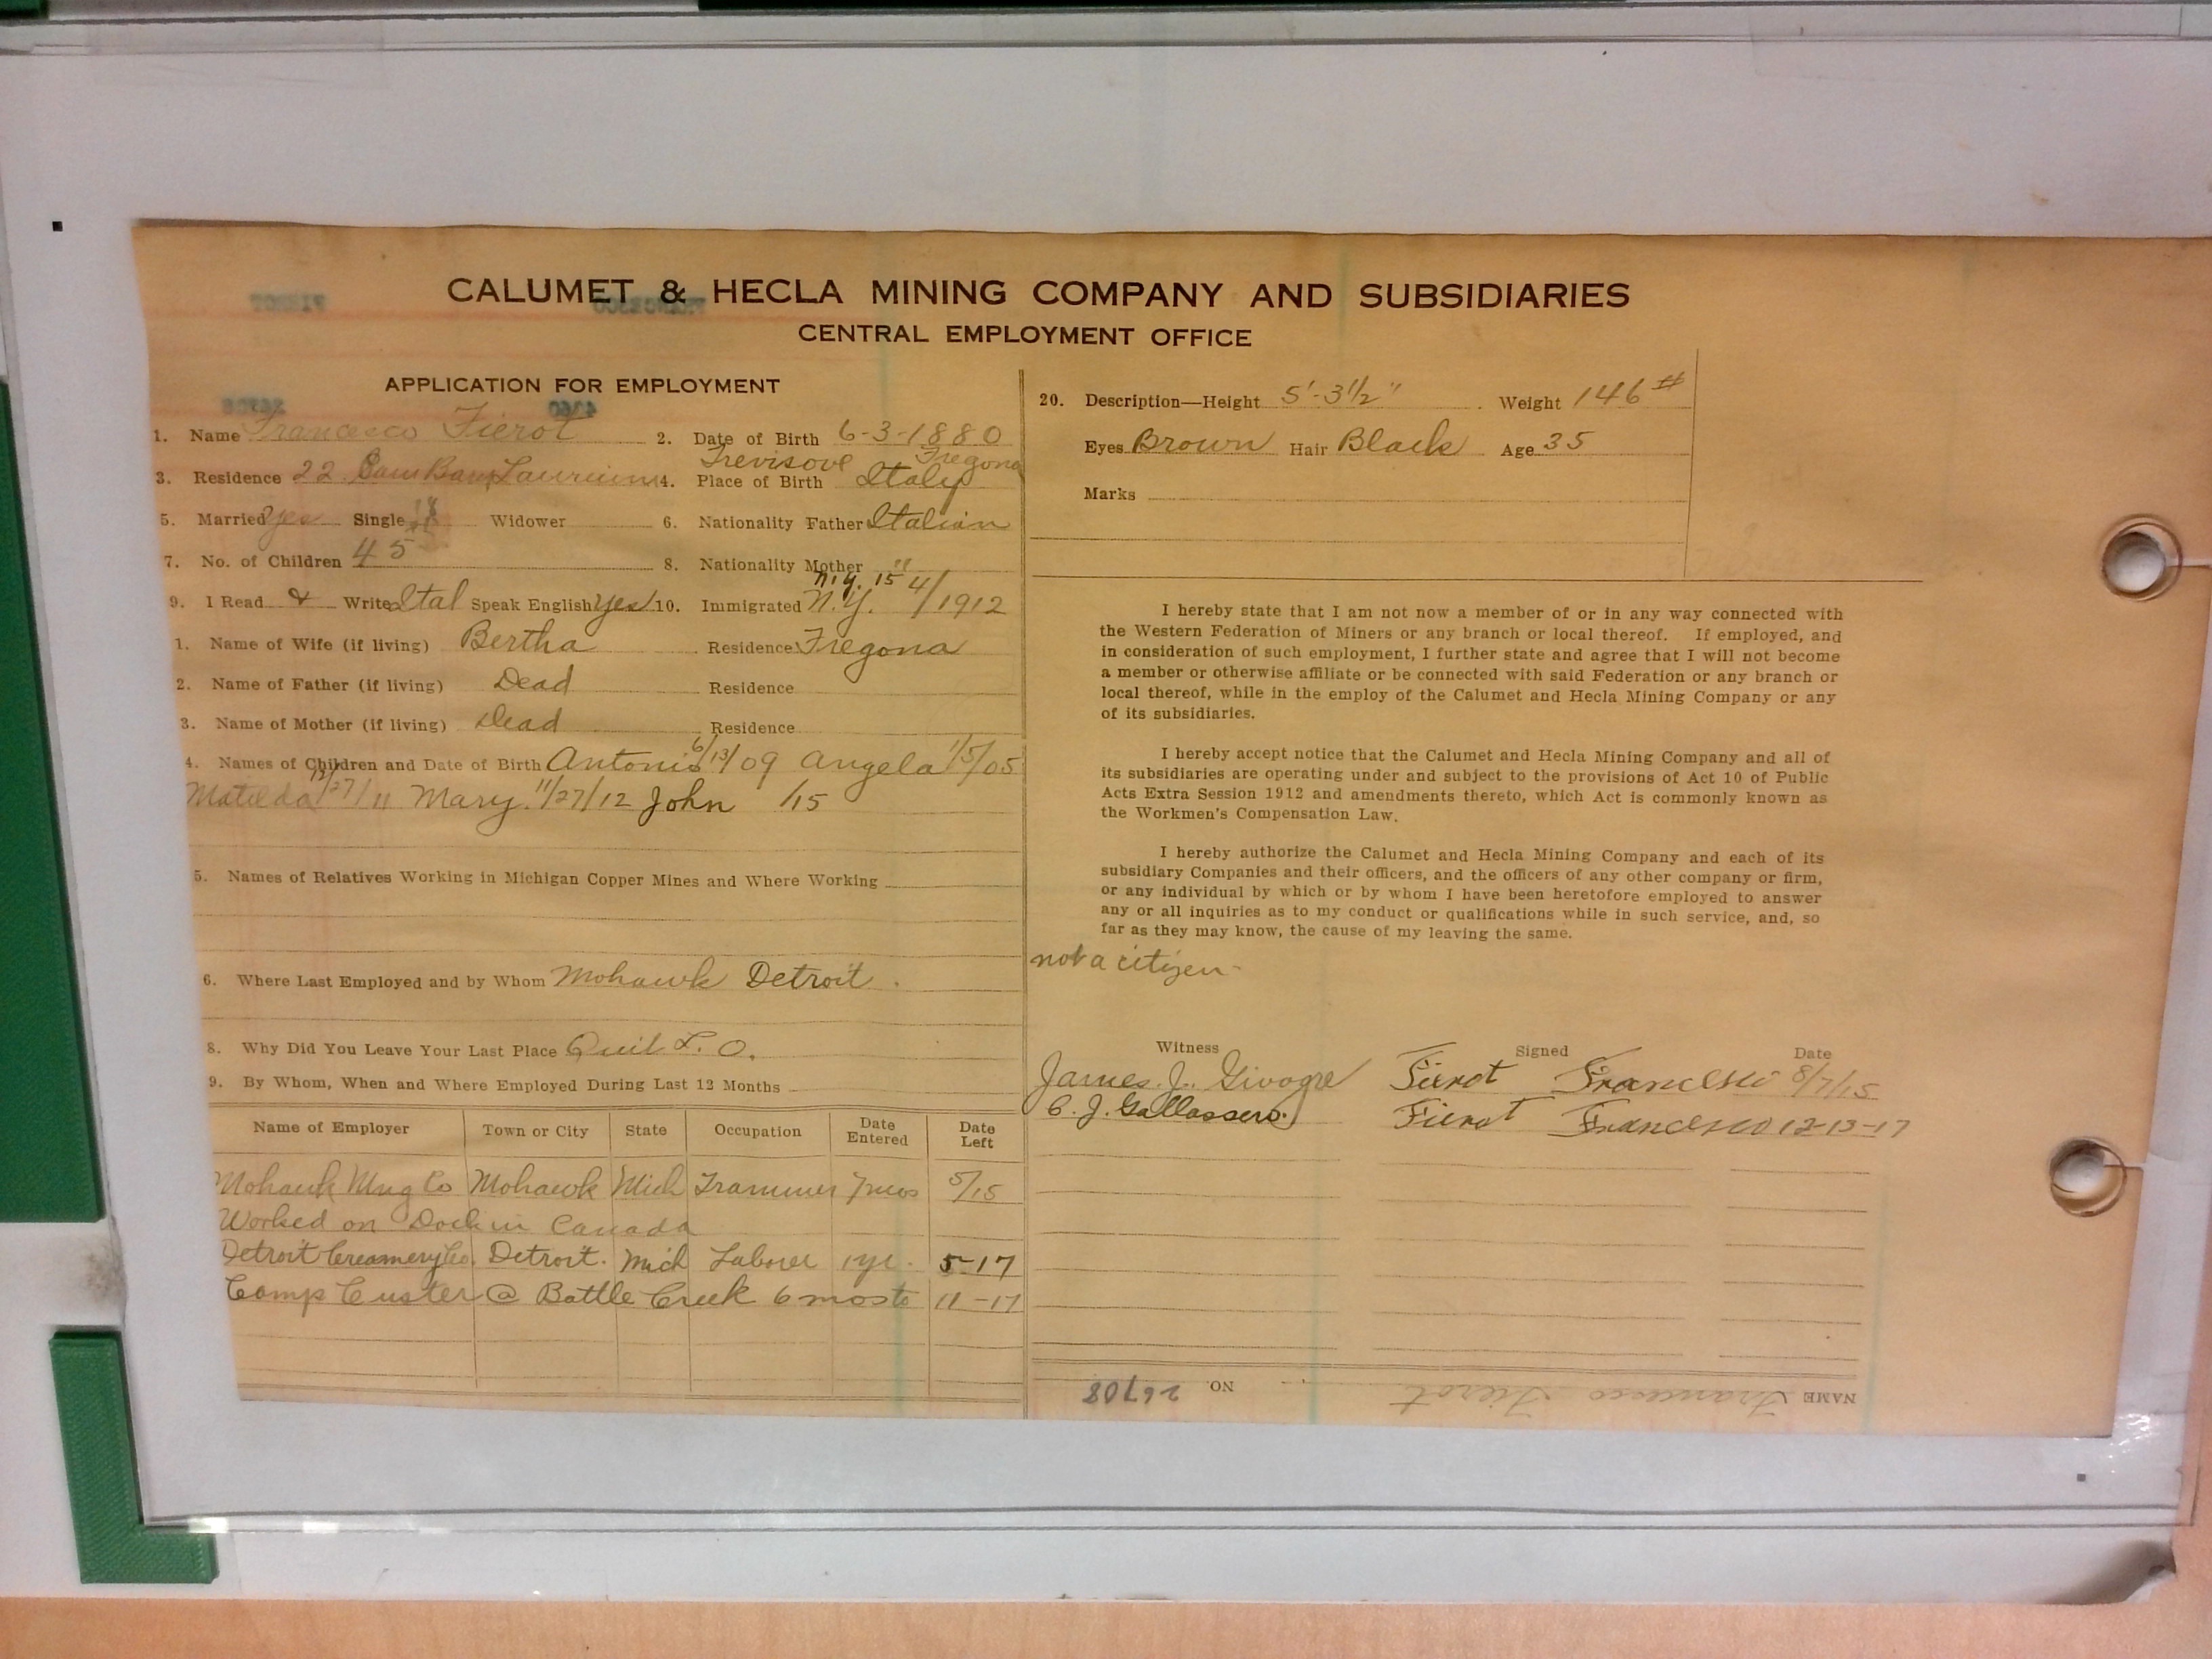 CALUMET & HECLA MINING COMPANY AND SUBSIDIARIES
CENTRAL EMPLOYMENT OFFICE
APPLICATION FOR EMPLOYMENT
1. Name Francesco Fierot 2. Date of Birth 6-3-1880
Fregona
3. Residence 22 Laurium 4. Place of Birth Italy
5. Married Yes Single Widower 6. Nationality Father Italian
7. No. of Children 4 5 8. Nationality Mother "
N.Y. 15
9. I Read & Write Ital Speak English Yes 10. Immigrated N.Y. 4/1912
1. Name of Wife (if living) Bertha Residence Fregona
2. Name of Father (if living) Dead Residence
3. Name of Mother (if living) Dead Residence
4. Names of Children and Date of Birth Antonio 6/13/09 Angela 1/5/05
Matilda 12/27/11 Mary 11/27/12 John /15
5. Names of Relatives Working in Michigan Copper Mines and Where Working
6. Where Last Employed and by Whom Mohawk Detroit
8. Why Did You Leave Your Last Place Quit L. O.
9. By Whom, When and Where Employed During Last 12 Months
Name of Employer Town or City State Occupation Date Entered Date Left
Mohawk Mng Co Mohawk Mich Trammer 7 mos 5/15
Worked on Dock in Canada
Detroit Creamery Co. Detroit. Mich Laborer 1 yr. 5-17
Camp Custer @ Battle Creek 6 mos to 11-17
20. Description—Height 5'-3½" Weight 146#
Eyes Brown Hair Black Age 35
Marks
I hereby state that I am not now a member of or in any way connected with
the Western Federation of Miners or any branch or local thereof. If employed, and
in consideration of such employment, I further state and agree that I will not become
a member or otherwise affiliate or be connected with said Federation or any branch or
local thereof, while in the employ of the Calumet and Hecla Mining Company or any
of its subsidiaries.
I hereby accept notice that the Calumet and Hecla Mining Company and all of
its subsidiaries are operating under and subject to the provisions of Act 10 of Public
Acts Extra Session 1912 and amendments thereto, which Act is commonly known as
the Workmen's Compensation Law.
I hereby authorize the Calumet and Hecla Mining Company and each of its
subsidiary Companies and their officers, and the officers of any other company or firm,
or any individual by which or by whom I have been heretofore employed to answer
any or all inquiries as to my conduct or qualifications while in such service, and, so
far as they may know, the cause of my leaving the same.
not a citizen-
Witness Signed Date
James. J. Fierot Francesco 8/7/15
C. J. Fierot Francesco 12-13-17
NAME Francesco Fierot NO. 26708